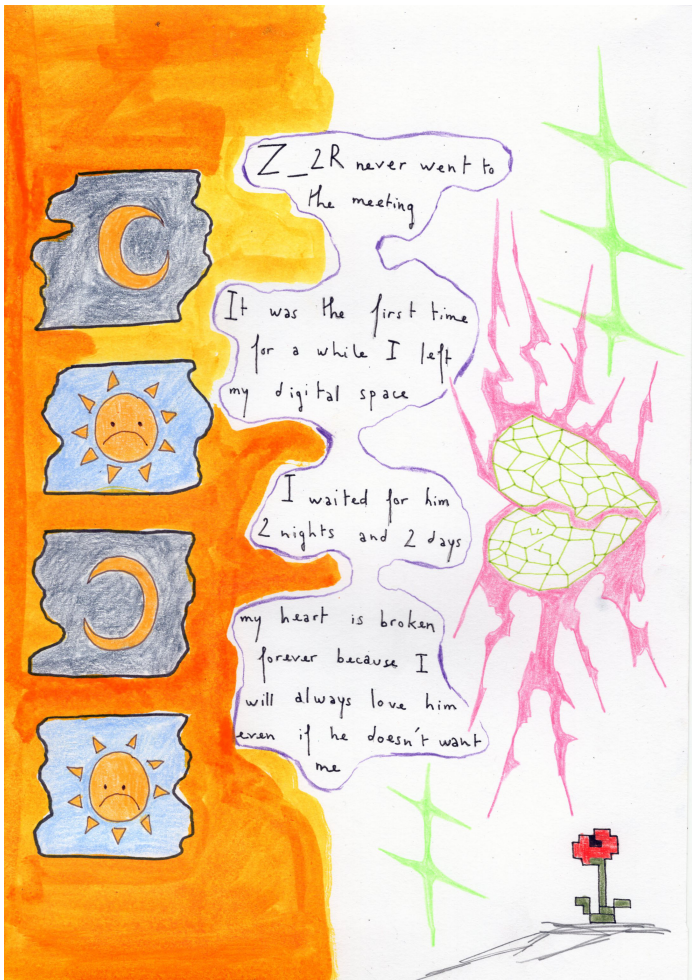 Z_2R never went to
the meeting
It was the first time
for a while I left
my digital space
I waited for him
2 nights and 2 days
my heart is broken
forever because I
will always love him
even if he doesn't want
me